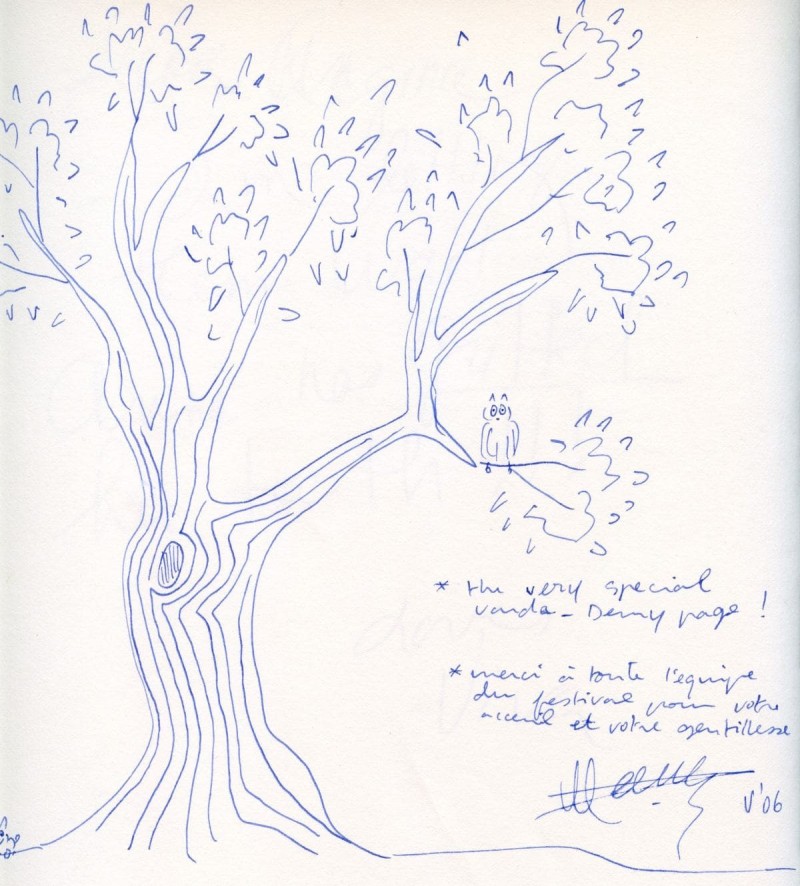 * the very special
vanda - Demy page !
* merci à toute l'équipe
du festival pour votre
accueil et votre gentillesse
V'06